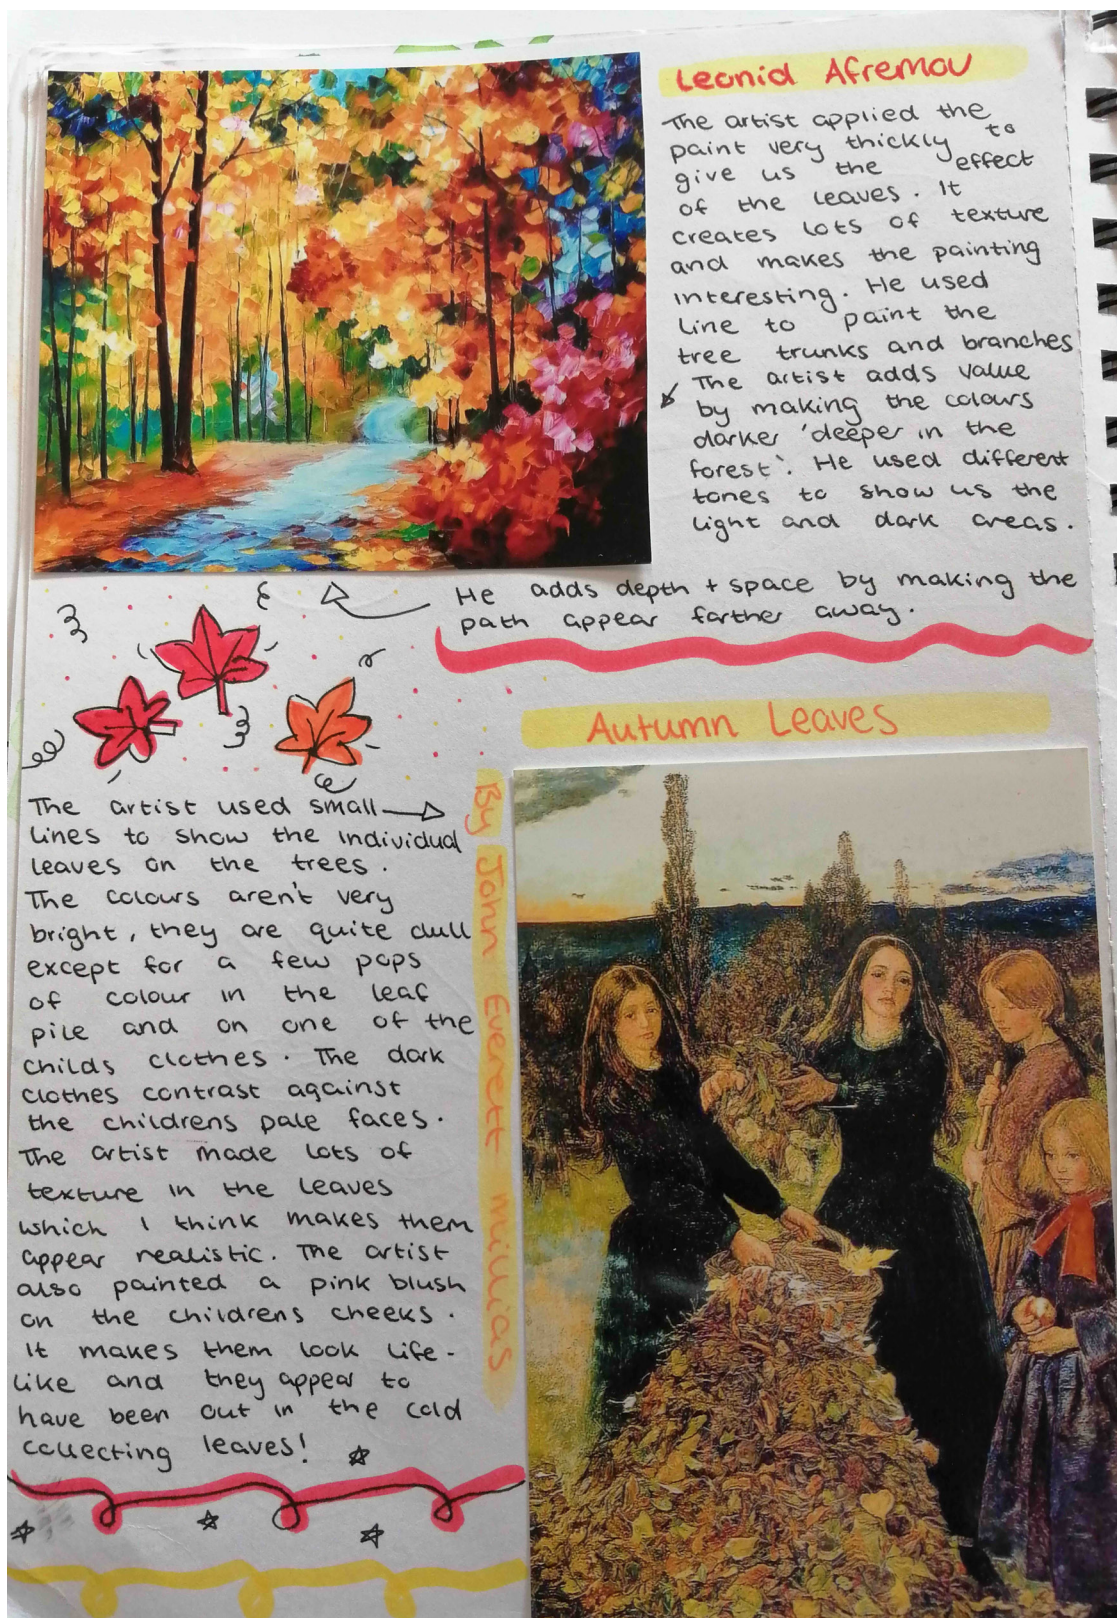 Leonid Afremov
The artist applied the
paint very thickly to
give us the effect
of the leaves. It
creates lots of texture
and makes the painting
interesting. He used
line to paint the
tree trunks and branches
The artist adds value
by making the colours
darker 'deeper in the
forest'. He used different
tones to show us the
light and dark areas.
He adds depth + space by making the
path appear farther away.
Autumn Leaves
By John Everett millias
The artist used small
lines to show the individual
leaves on the trees.
The colours aren't very
bright, they are quite dull
except for a few pops
of colour in the leaf
pile and on one of the
childs clothes. The dark
clothes contrast against
the childrens pale faces.
The artist made lots of
texture in the leaves
which I think makes them
appear realistic. The artist
also painted a pink blush
on the childrens cheeks.
It makes them look life-
like and they appear to
have been out in the cold
collecting leaves!